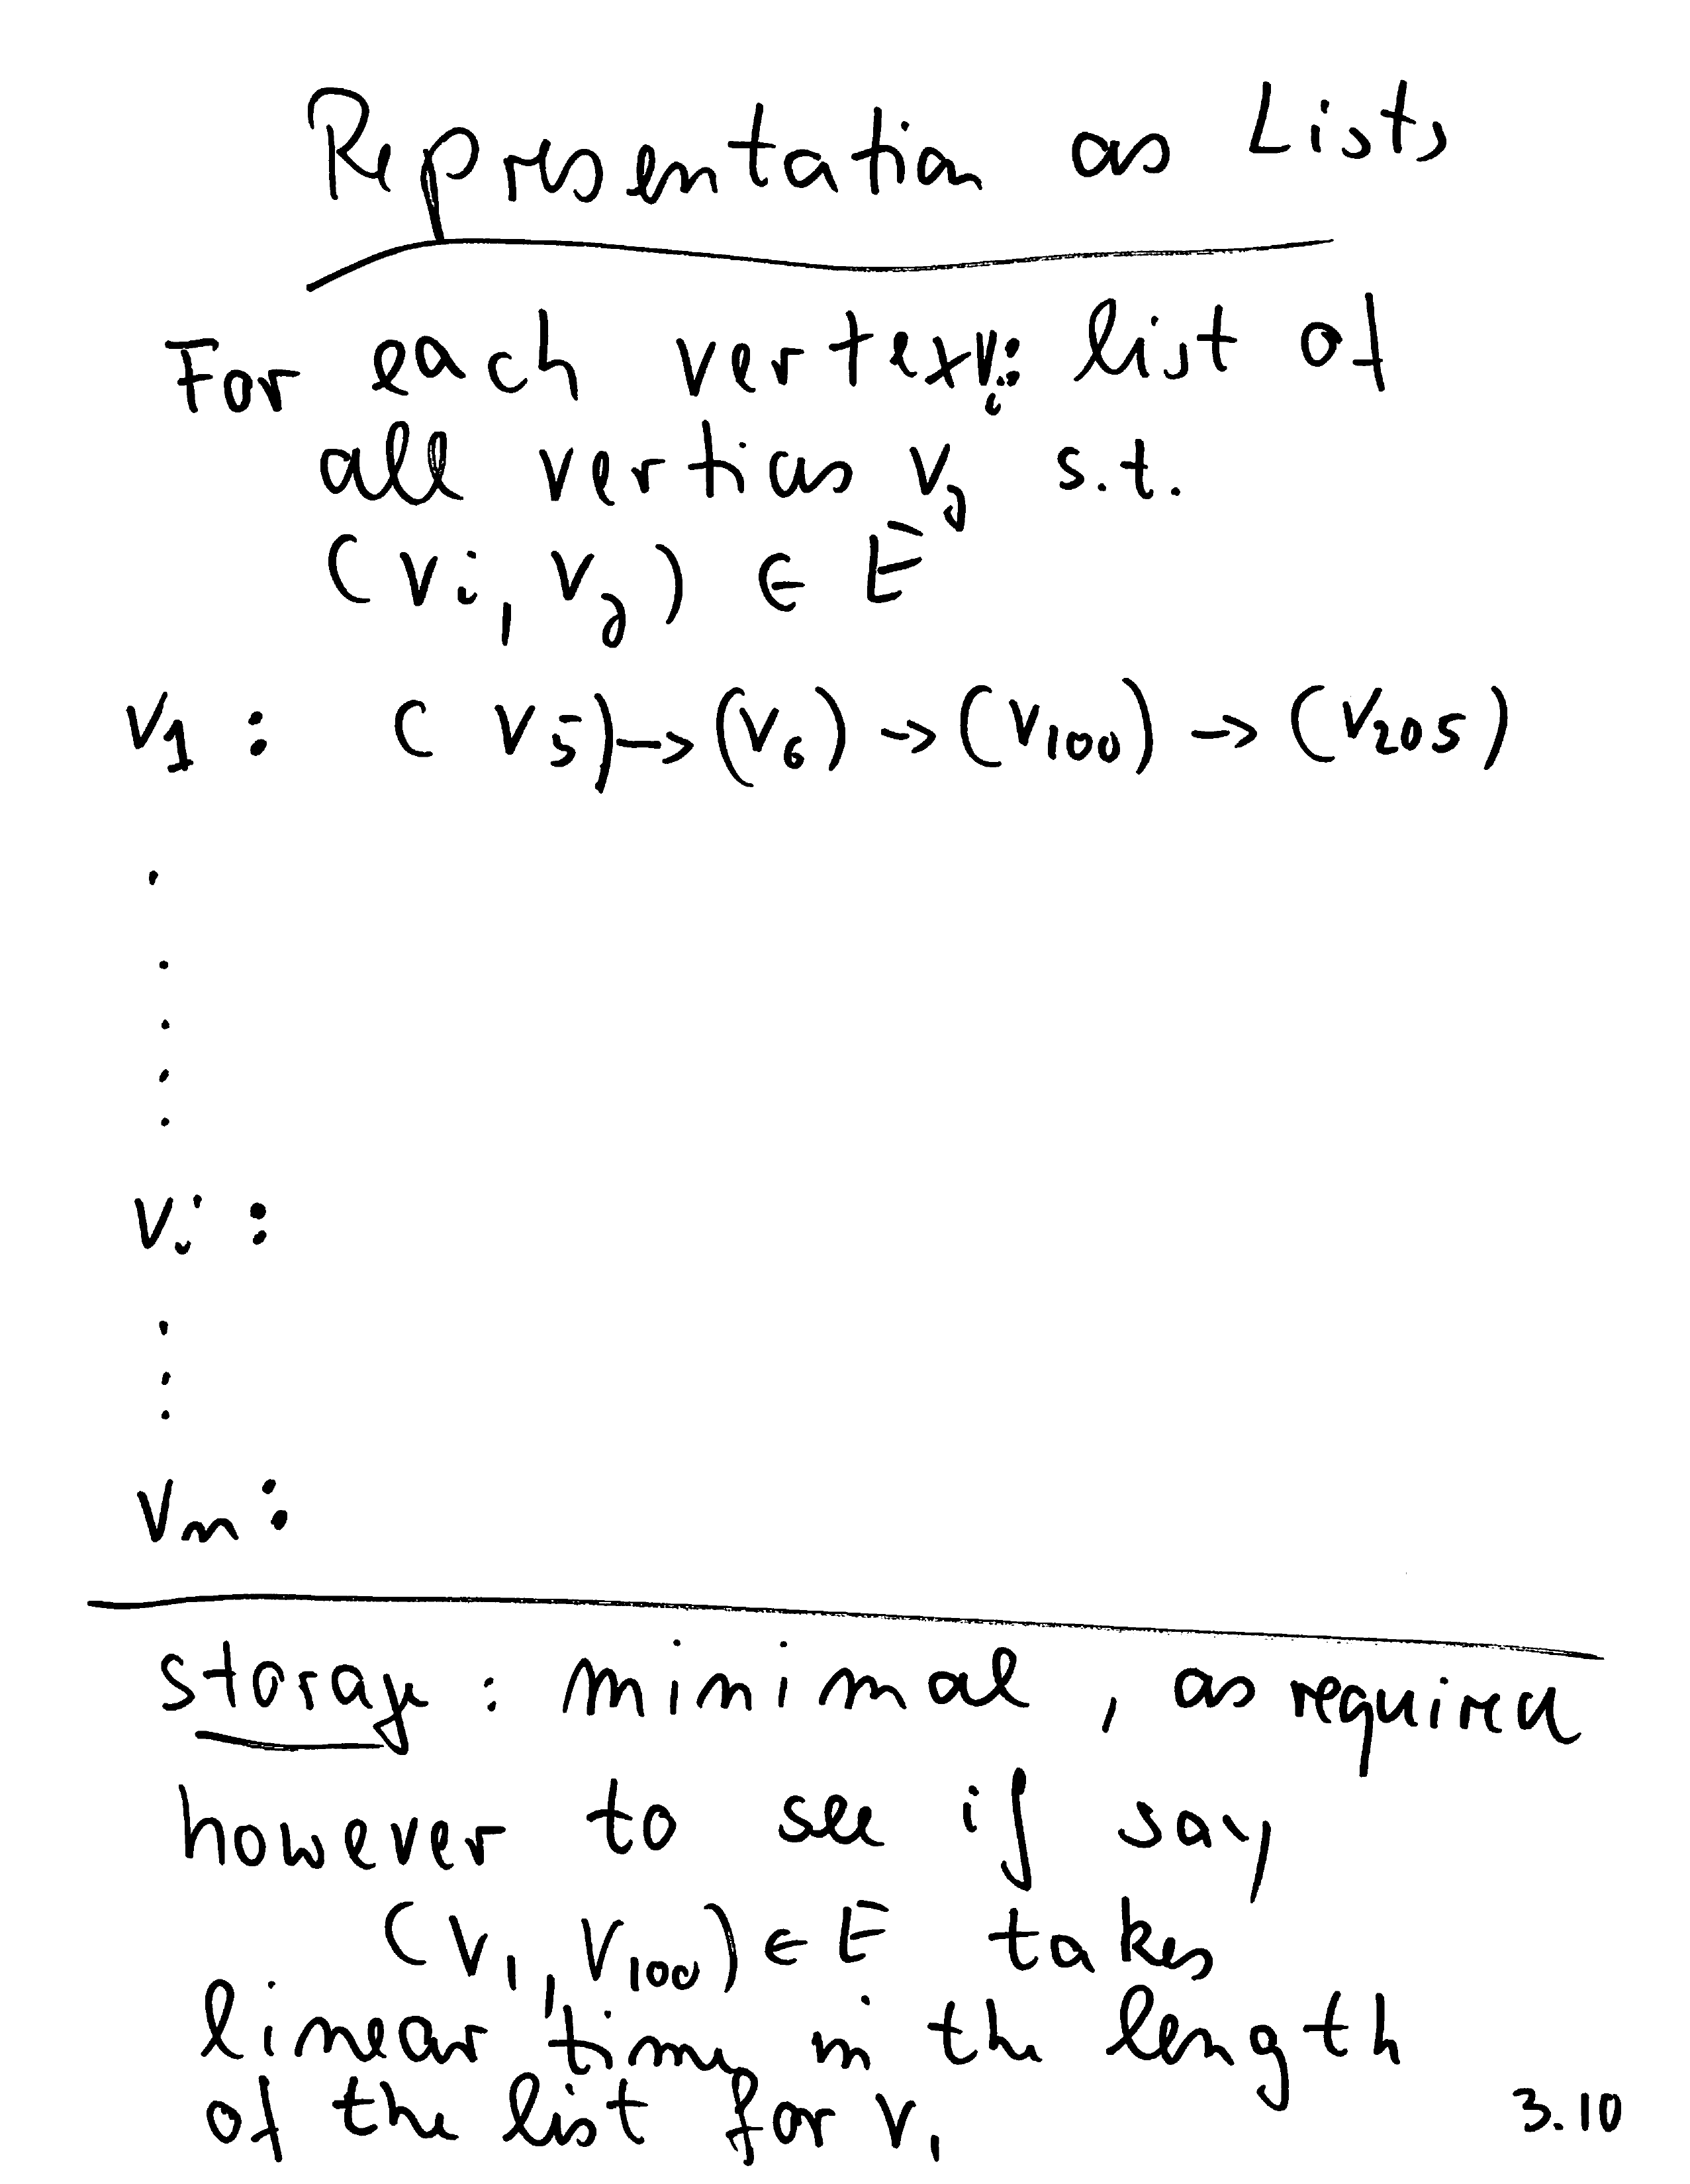 Representation as Lists
For each vertex vᵢ: list of
all vertices vⱼ s.t.
(vᵢ, vⱼ) ∈ E
v₁ : (v₅) → (v₆) → (v₁₀₀) → (v₂₀₅)
.
.
.
.
.
vᵢ :
.
.
.
vₙ :
storage : minimal, as required
however to see if say
(v₁, v₁₀₀) ∈ E takes
linear time in the length
of the list for v₁
3.10